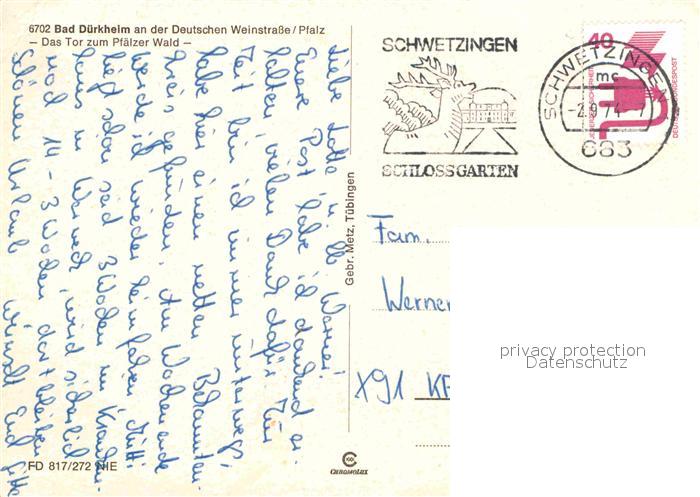 6702 Bad Dürkheim an der Deutschen Weinstraße/Pfalz
– Das Tor zum Pfälzer Wald –
Liebe Lotte u. lb. Werner!
Eure Post habe ich dankend er-
halten, vielen Dank dafür. Zur
Zeit bin ich immer unterwegs,
habe hier einen netten Bekannten-
kreis gefunden. Am Wochenende
werde ich wieder heimfahren. Mutti
liegt schon seit 3 Wochen im Kranken-
haus in Werneck, wird sicherlich
noch 14 - 3 Wochen dort bleiben.
Schönen Urlaub wünscht Euch
FD 817/272 NIE
Gebr. Metz, Tübingen
CHROMOLUX
SCHWETZINGEN
SCHLOSSGARTEN
40
JEDERZEIT SICHERHEIT
DEUTSCHE BUNDESPOST
SCHWETZINGEN
mc
683
Fam.
Werner
X91
privacy protection
Datenschutz